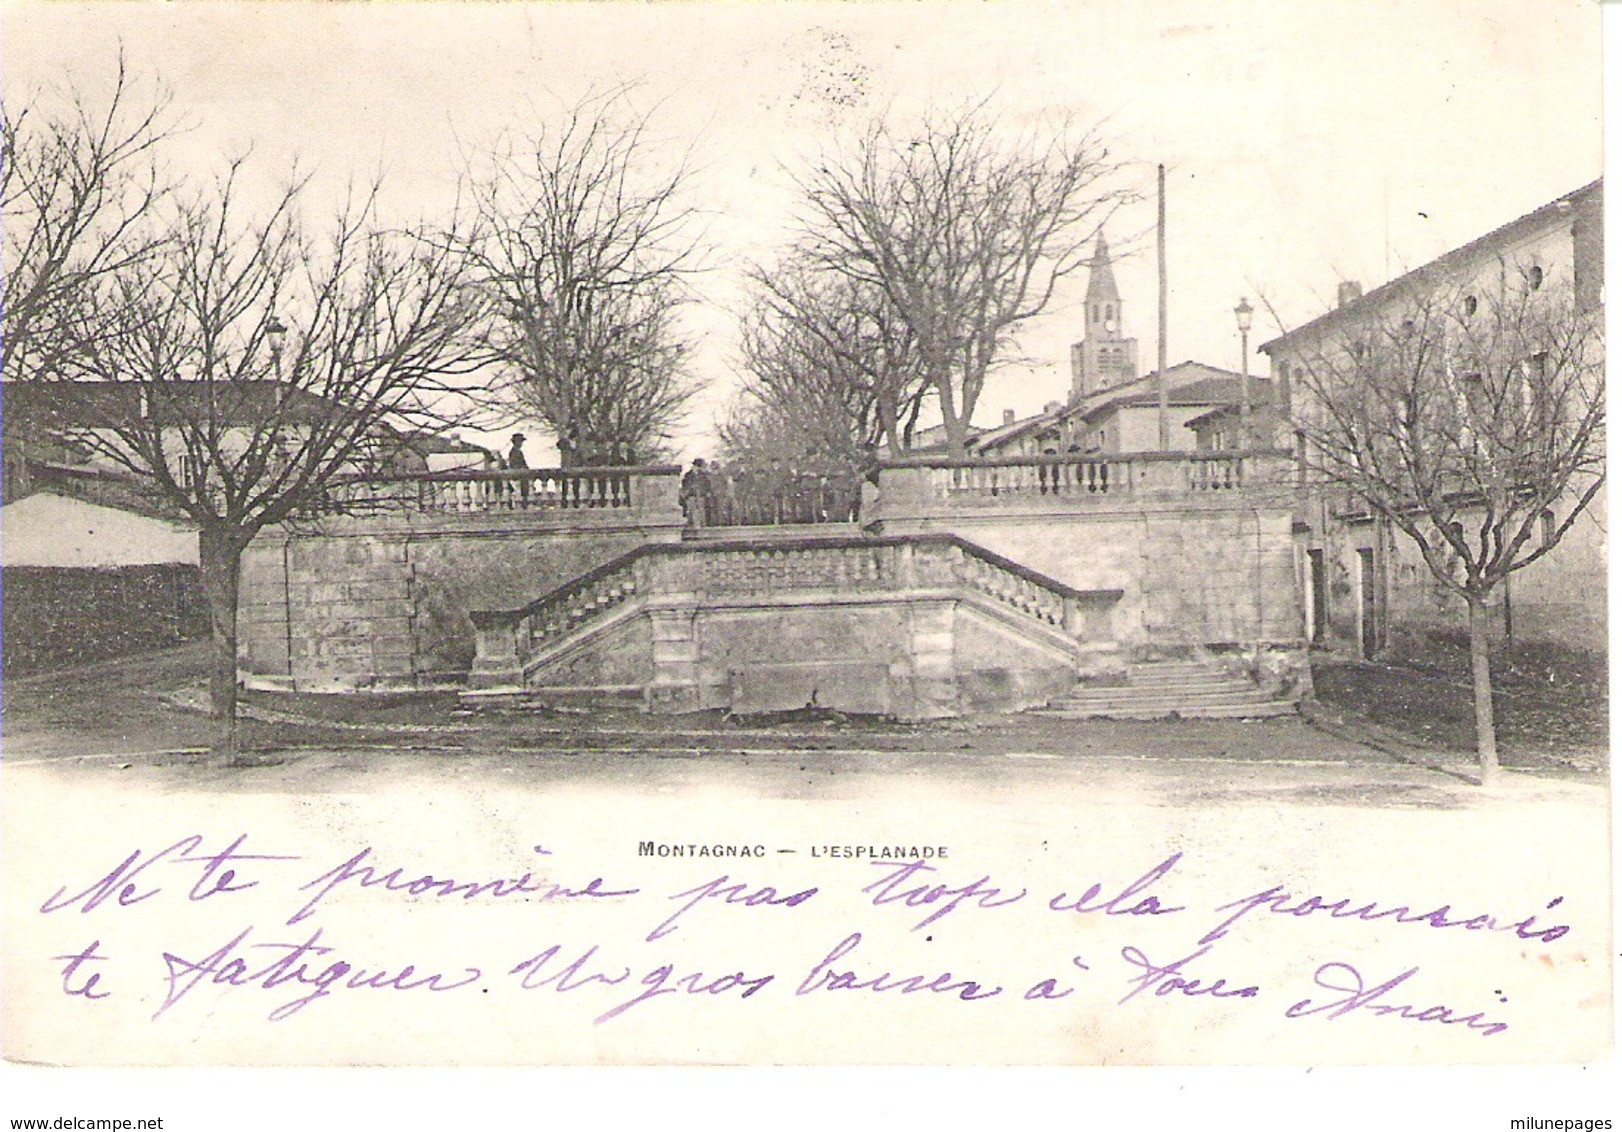 MONTAGNAC — L'ESPLANADE
Ne te promène pas trop cela pourrais
te fatiguer. Un gros baiser à tous Anaïs
delcampe.net
milunepages